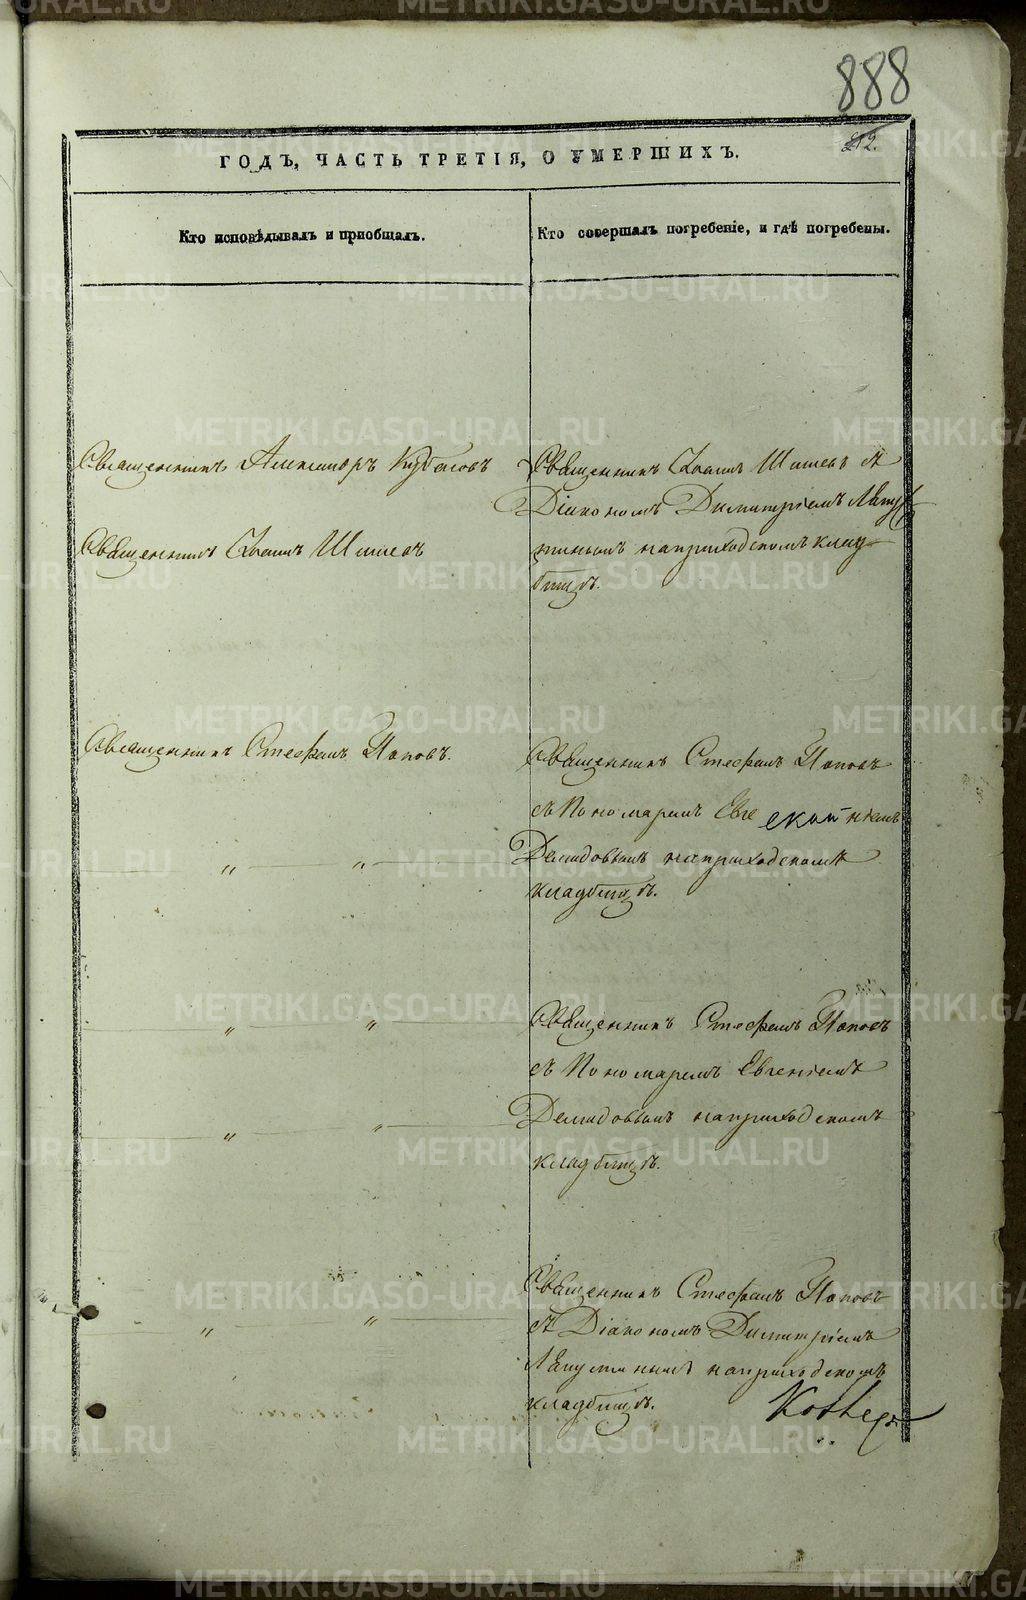 888
212.
ГОДЪ, ЧАСТЬ ТРЕТІЯ, О УМЕРШИХЪ.
Кто исповѣдывалъ и пріобщалъ.
Кто совершалъ погребеніе, и гдѣ погребены.
Священникъ Александръ Кубасовъ
Священникъ Іоаннъ Шишевъ
Священникъ Іоаннъ Шишевъ съ
Діакономъ Димитріемъ Авгус
тиномъ на приходскомъ клад
бищѣ.
Священникъ Стефанъ Поповъ.
Священникъ Стефанъ Поповъ
съ Пономаремъ Евге ніемъ
Демидовымъ на приходскомъ
кладбищѣ.
Священникъ Стефанъ Поповъ
съ Пономаремъ Евгеніемъ
Демидовымъ на приходскомъ
кладбищѣ.
Священникъ Стефанъ Поповъ
съ Діакономъ Димитріемъ
на приходскомъ
кладбищѣ.
METRIKI.GASO-URAL.RU